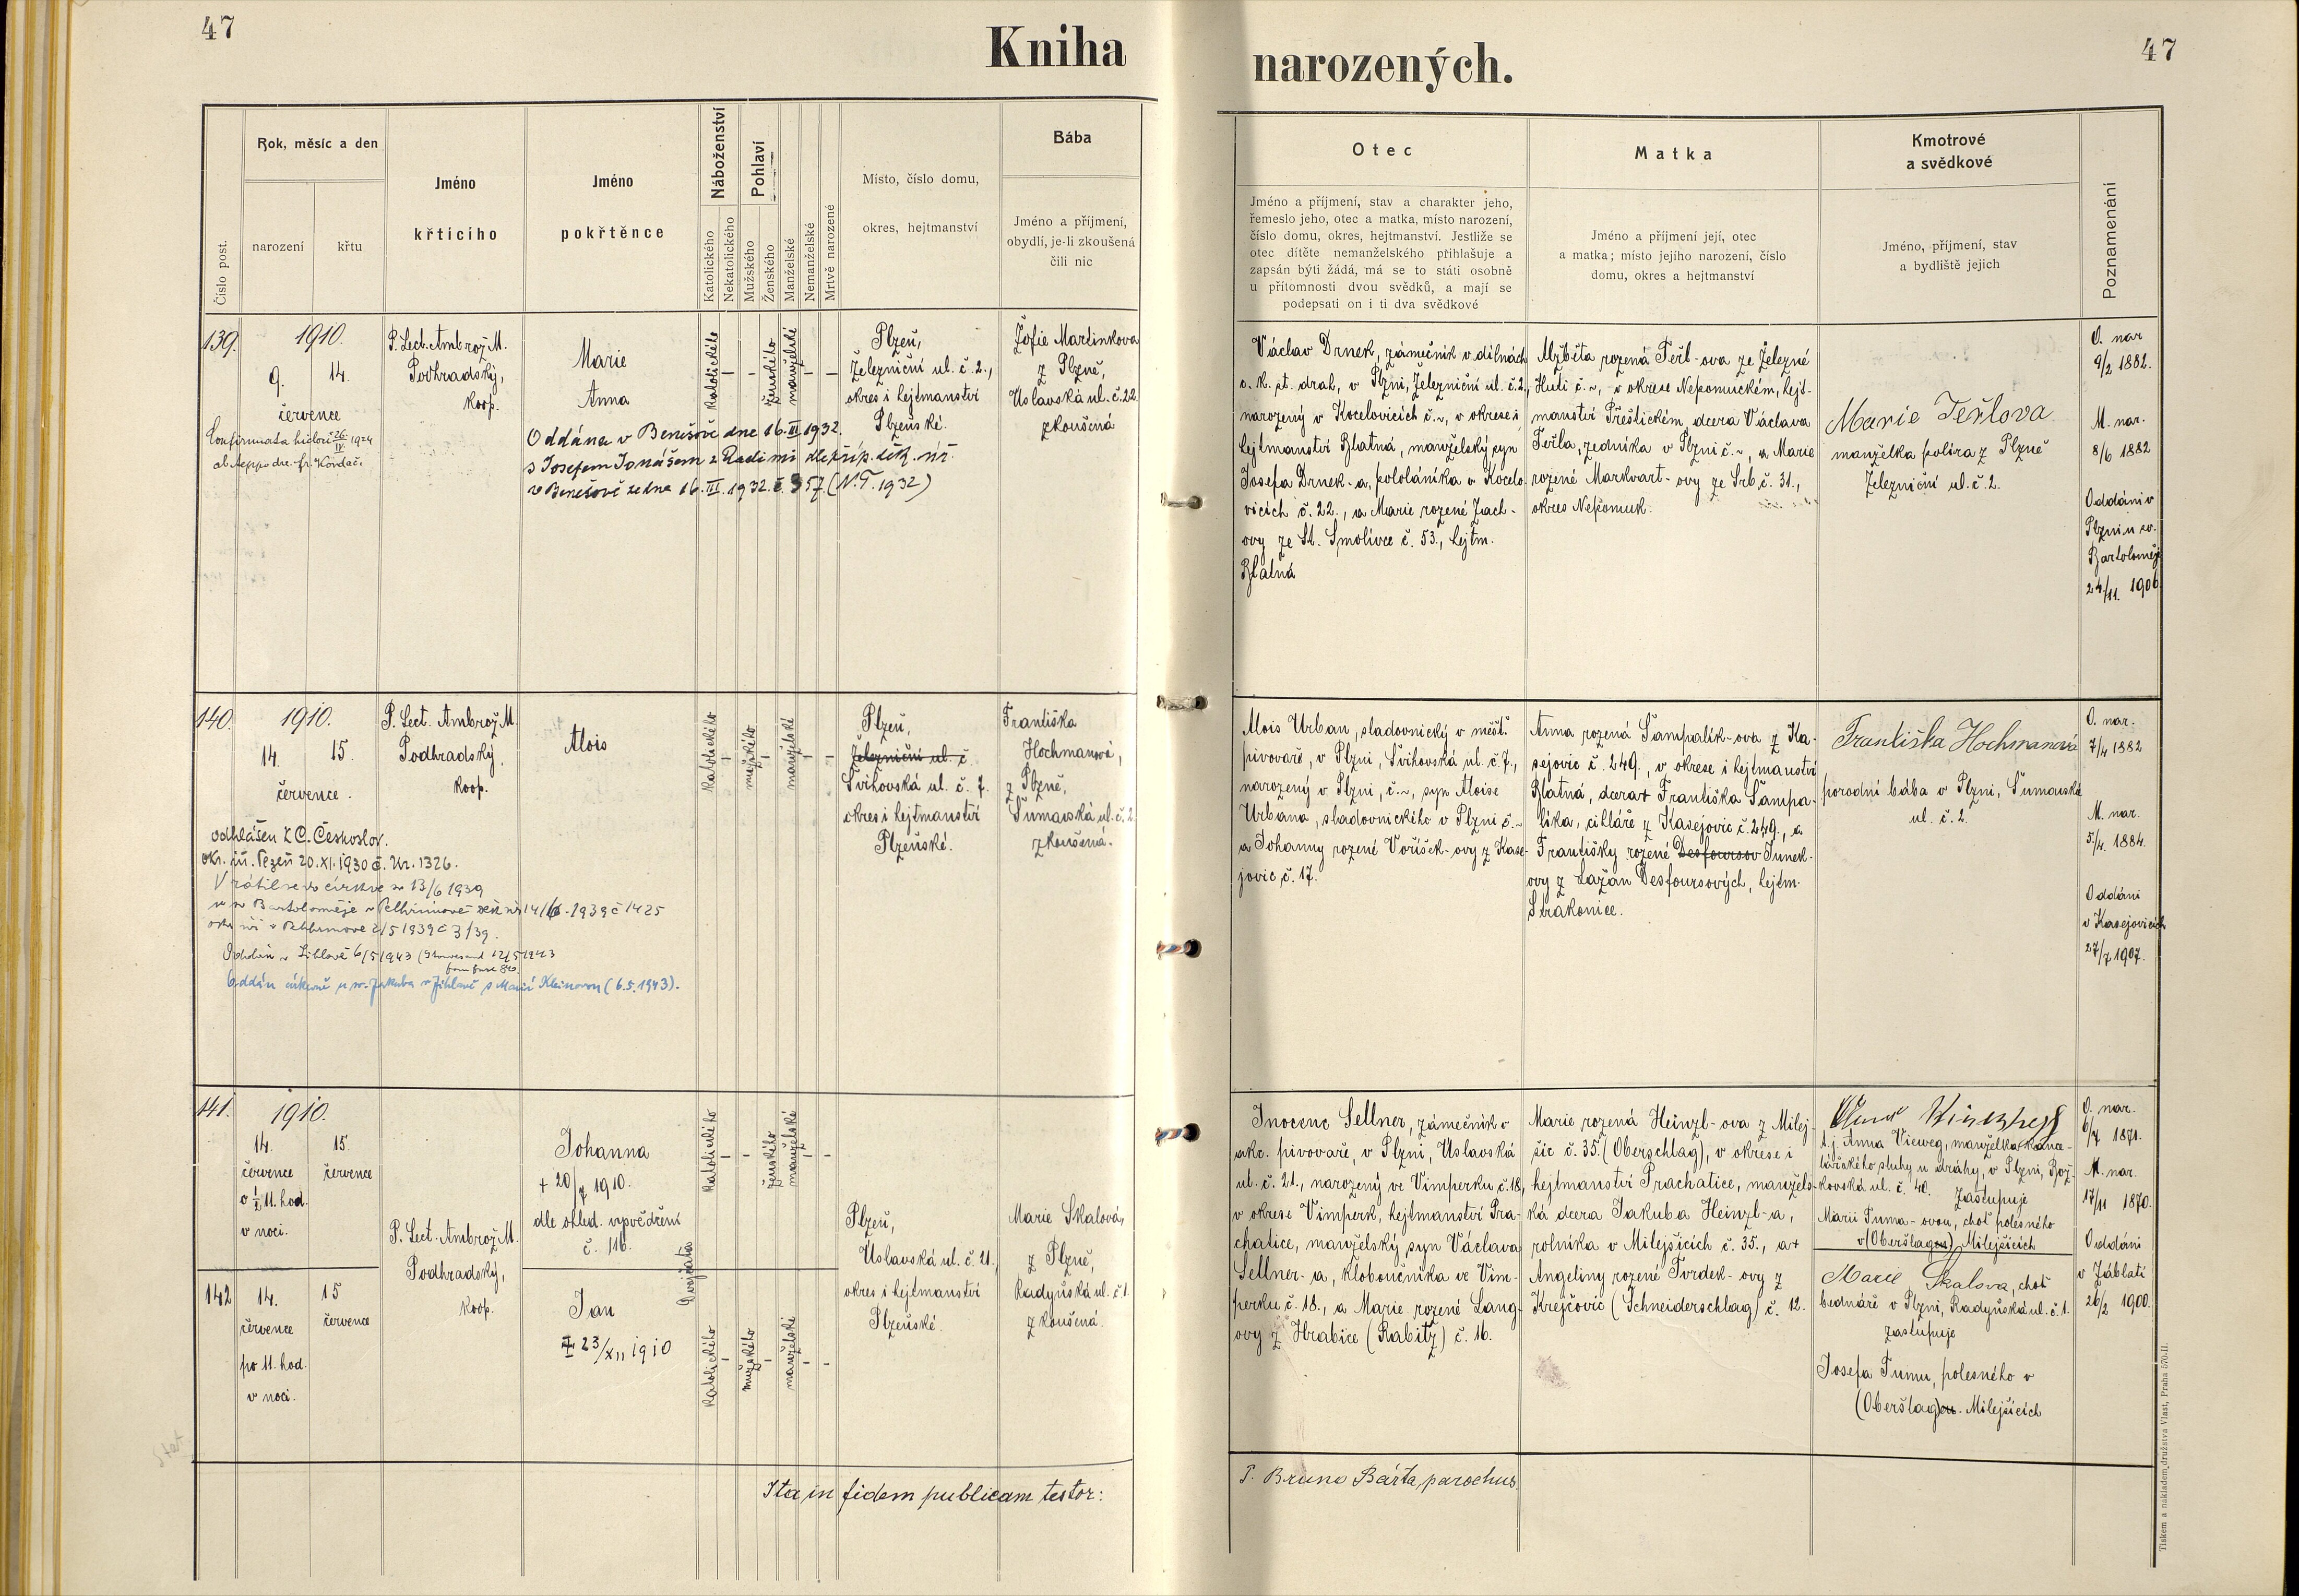 47
Kniha
narozených.
47
Číslo post.
Rok, měsíc a den
narození
křtu
Jméno
křtícího
Jméno
pokřtěnce
Náboženství
Katolického
Nekatolického
Pohlaví
Mužského
Ženského
Manželské
Nemanželské
Mrtvě narozené
Místo, číslo domu,
okres, hejtmanství
Bába
Jméno a příjmení,
obydlí, je-li zkoušená
čili nic
Otec
Jméno a příjmení, stav a charakter jeho,
řemeslo jeho, otec a matka, místo narození,
číslo domu, okres, hejtmanství. Jestliže se
otec dítěte nemanželského přihlašuje a
zapsán býti žádá, má se to státi osobně
u přítomnosti dvou svědků, a mají se
podepsati on i ti dva svědkové
Matka
Jméno a příjmení její, otec
a matka; místo jejího narození, číslo
domu, okres a hejtmanství
Kmotrové
a svědkové
Jméno, příjmení, stav
a bydliště jejich
Poznamenání
139.
1910.
9.
14.
července
Confirmata hicloci 26/IV 1924
ab Aeppo dre. fr. Kordač.
P. Lect. Ambrož M.
Podhradský,
koop.
Marie
Anna
Oddána v Benešově dne 16.II.1932.
s Josefem Jonášem z Radimi dle příp. děk. úř.
v Benešově ze dne 16.III.1932.č.357 (N.T. 1932)
Katolického
-
-
ženského
manželské
-
-
Plzeň,
Železniční ul. č. 2.,
okres i hejtmanství
Plzeňské.
Žofie Martinkova
z Plzně,
Úslavská ul. č. 22.
zkoušená
Václav Drnek, zámečník v dílnách
c. k. st. drah, v Plzni, Železniční ul. č. 2.,
narozený v Kocelovicích č. ~, v okrese i
hejtmanství Blatná, manželský syn
Josefa Drnek-a, pololáníka v Kocelo-
vicích č. 22., a Marie rozené Zach-
ovy ze St. Smolivce č. 53., hejtm.
Blatná
Alžběta rozená Teřl-ova ze Železné
Huti č. ~, v okrese Nepomuckém, hejt-
manství Přeštickém, dcera Václava
Teřla, zedníka v Plzni č. ~, a Marie
rozené Markvart-ovy ze Srb č. 31.,
okres Nepomuk.
Marie Teřlova
manželka políra z Plzně
Železniční ul. č. 2.
O. nar
9/2 1882.
M. nar.
8/6 1882
Oddáni v
Plzni u sv.
Bartoloměje
24/11. 1906.
140.
1910.
14.
15.
července.
odhlášen z C. Českoslov.
okr. úř. Plzeň 20.XI.1930 č. Kr. 1326.
Vrátil se do církve 13/6 1939
u sv Bartoloměje v Pelhřimově
Oddán v Jihlavě 6/5 1943
Oddán církevně u sv. Jakuba v Jihlavě s Marií Kleinovou (6.5.1943).
P. Lect. Ambrož M.
Podhradský,
koop.
Alois
Katolického
-
mužského
-
manželské
-
-
Plzeň,
Železniční ul. č
Švihovská ul. č. 7.
okres i hejtmanství
Plzeňské.
Františka
Hochmanová,
z Plzně,
Šumavská ul. č. 2.
zkoušená.
Alois Urban, sladovnický v měšť.
pivovaře, v Plzni, Švihovská ul. č. 7.,
narozený v Plzni, č. ~, syn Aloise
Urbana, sladovnického v Plzni č. ~
a Johanny rozené Voříšek-ovy z Kase-
jovic, č. 17.
Anna rozená Šampalík-ova z Ka-
sejovic č. 249., v okrese i hejtmanství
Blatná, dcera† Františka Šampa-
líka, cihláře z Kasejovic č. 249., a
Františky rozené Desfoursov Junek-
ovy z Lažan Desfoursových, hejtm.
Strakonice.
Františka Hochmanová
porodní bába v Plzni, Šumavská
ul. č. 2.
O. nar.
7/4 1882
M. nar.
5/4. 1884.
Oddáni
v Kasejovicích
27/7 1907.
141.
1910.
14.
července
o ½ 11. hod.
v noci.
15.
července
P. Lect. Ambrož M.
Podhradský,
koop.
Johanna
+ 20/7 1910.
dle ohled. vysvědčení
č. 116.
Dvojčata
Katolického
-
-
ženského
manželské
-
-
Plzeň,
Úslavská ul. č. 21.,
okres i hejtmanství
Plzeňské.
Marie Skalová,
z Plzně,
Radyňská ul. č 1.
zkoušená.
142
14.
července
po 11. hod.
v noci.
15
července
Jan
‡ 23/XII 1910
Katolického
-
mužského
-
manželské
-
-
Inocenc Sellner, zámečník v
akc. pivovaře, v Plzni, Úslavská
ul. č. 21., narozený ve Vimperku č. 18,
v okrese Vimperk, hejtmanství Pra-
chatice, manželský syn Václava
Sellner-a, kloboučníka ve Vim-
perku č. 18., a Marie rozené Lang-
ovy z Hrabice (Rabitz) č. 16.
Marie rozená Heinzl-ova z Milej-
šic č. 35. (Oberschlag), v okrese i
hejtmanství Prachatice, manžels-
ká dcera Jakuba Heinzl-a,
rolníka v Milejšicích č. 35., a†
Angeliny rozené Tvrdek-ovy z
Krejčovic (Schneiderschlag) č. 12.
t. j. Anna Vieweg, manželka kance-
lářského sluhy u dráhy, v Plzni, Rož-
kovská ul. č. 40. zastupuje
Marii Tuma-ovou, choť polesného
v (Oberšlagu) Milejšicích
Marie Skalova, choť
bednáře v Plzni, Radyňská ul. č. 1.
zastupuje
Josefa Tumu, polesného v
(Oberšlagu. Milejšicích
O. nar.
6/7 1871.
M. nar.
17/11 1870.
Oddáni
v Záblatí
26/2 1900.
Ita in fidem publicam testor:
P. Bruno Bárta, parochus.
Tiskem a nákladem družstva Vlast, Praha 570-II.